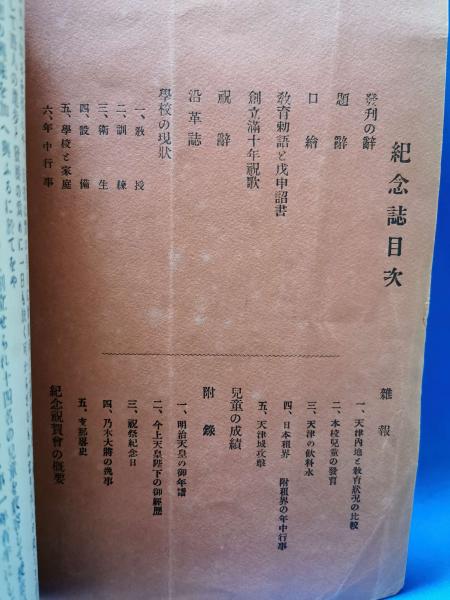 紀念誌目次
發刊の辭
題辭
口繪
教育勅語と戊申詔書
創立滿十年祝歌
祝辭
沿革誌
學校の現狀
一、教授
二、訓練
三、衛生
四、設備
五、學校と家庭
六、年中行事
雜報
一、天津內地と教育狀況の比較
二、本校兒童の發育
三、天津の飲料水
四、日本租界 附租界の年中行事
五、天津城攻擊
兒童の成績
附錄
一、明治天皇の御年譜
二、今上天皇陛下の御經歷
三、祝祭紀念日
四、乃木大將の幾事
五、支那略史
紀念祝賀會の概要